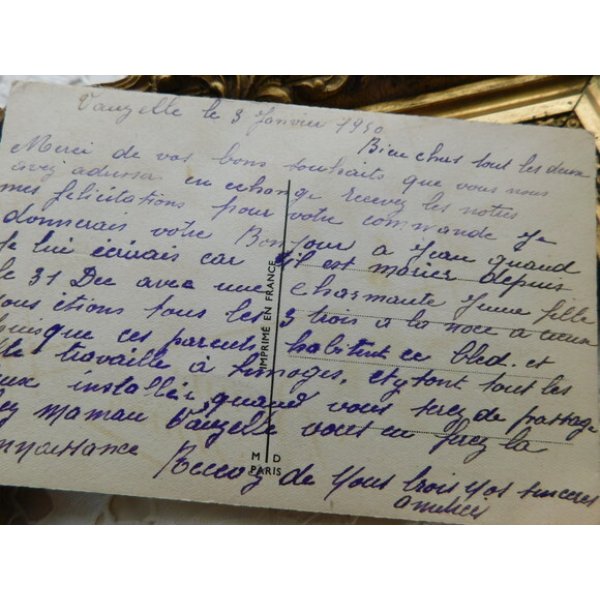 Vauzelle le 3 Janvier 1950
Bien chers tout les deux
Merci de vos bons souhaits que vous nous
avez adresser en echange recevez les notres
mes felicitations pour votre commande Je
donnerais votre Bonjour a Jean quand
Je lui écrirais car il est marier depuis
le 31 Dec avec une charmante Jeune fille
nous étions tous les 3 trois a la noce a
puisque ces parents habitent ce bled. et
travaille à Limoges, et y sont tout les
deux installer, quand vous serez de passage
chez Maman Vauzelle vous en ferez la
connaissance Recevez de Nous trois Nos sinceres
amitiés
IMPRIMÉ EN FRANCE
M D
PARIS